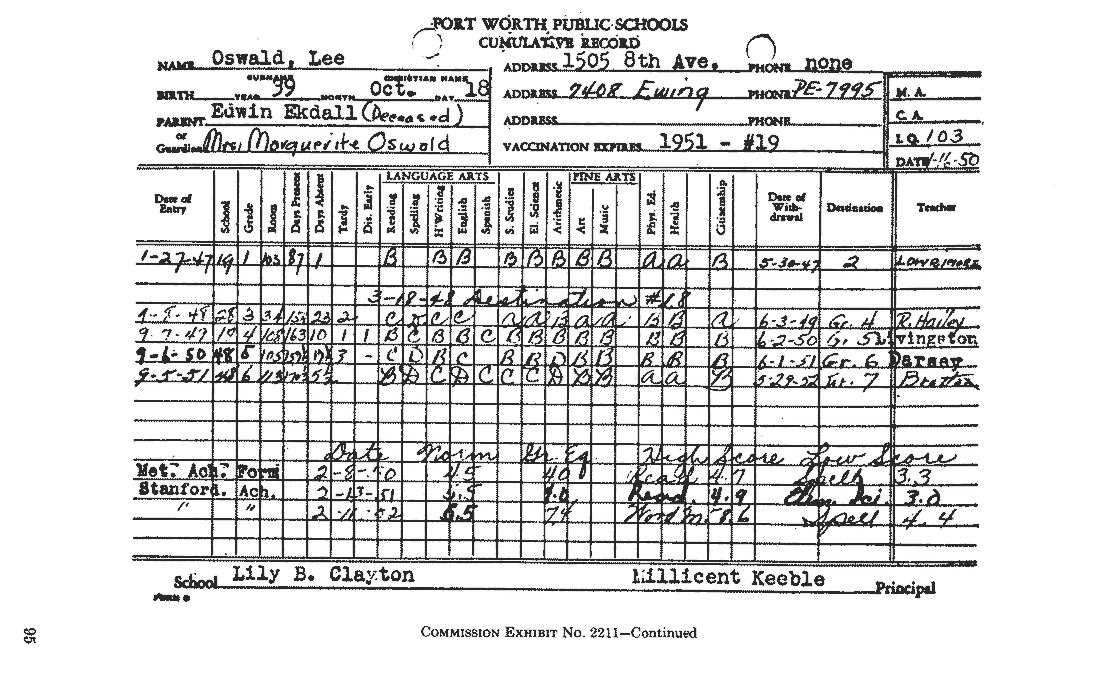 FORT WORTH PUBLIC SCHOOLS
CUMULATIVE RECORD
NAME Oswald, Lee ADDRESS 1505 8th Ave. PHONE none
SURNAME CHRISTIAN NAME
BIRTH YEAR 39 MONTH Oct. DAY 18 ADDRESS 7408 Ewing PHONE PE-7995 M. A.
PARENT Edwin Ekdall (Deceased) ADDRESS PHONE C. A.
or Guardian Mrs. Marguerite Oswald VACCINATION EXPIRES 1951 - #19 I. Q. 103
DATE 50
LANGUAGE ARTS FINE ARTS
Date of Entry School Grade Room Days Present Days Absent Tardy Dis. Early Reading Spelling H'Writing English Spanish S. Studies El. Science Arithmetic Art Music Phys. Ed. Health Citizenship Date of With-drawal Destination Teacher
1-27-47 19 1 103 87 1 B B B B B B B B A A B 5-30-47 2
3-18-48 Destination #18
28 3 34 23 2 C D C C A A B A A B B A 6-3-49 Gr. 4 R. Hailey
4 108 163 10 1 1 B C B B C B B B B B B B B 6-2-50 Gr. 5 Livingston
9-6-50 48 5 105 3 - C D B C B B D B B B B B 6-1-51 Gr. 6
9-5-51 48 6 113 B D C D C C C D B B A A B 5-29-52 Gr. 7
Date Norm Gr. Eq High Score Low Score
Met. Ach. Form 2-8-50 4.5 40 Read 4.7 Spell 3.3
Stanford. Ach. 2-13-51 5.5 Read. 4.9 Elem. Sci. 3.0
" " 6.5 74 Word M. 8.6 Spell 4.4
School Lily B. Clayton Millicent Keeble Principal
COMMISSION EXHIBIT No. 2211—Continued
95